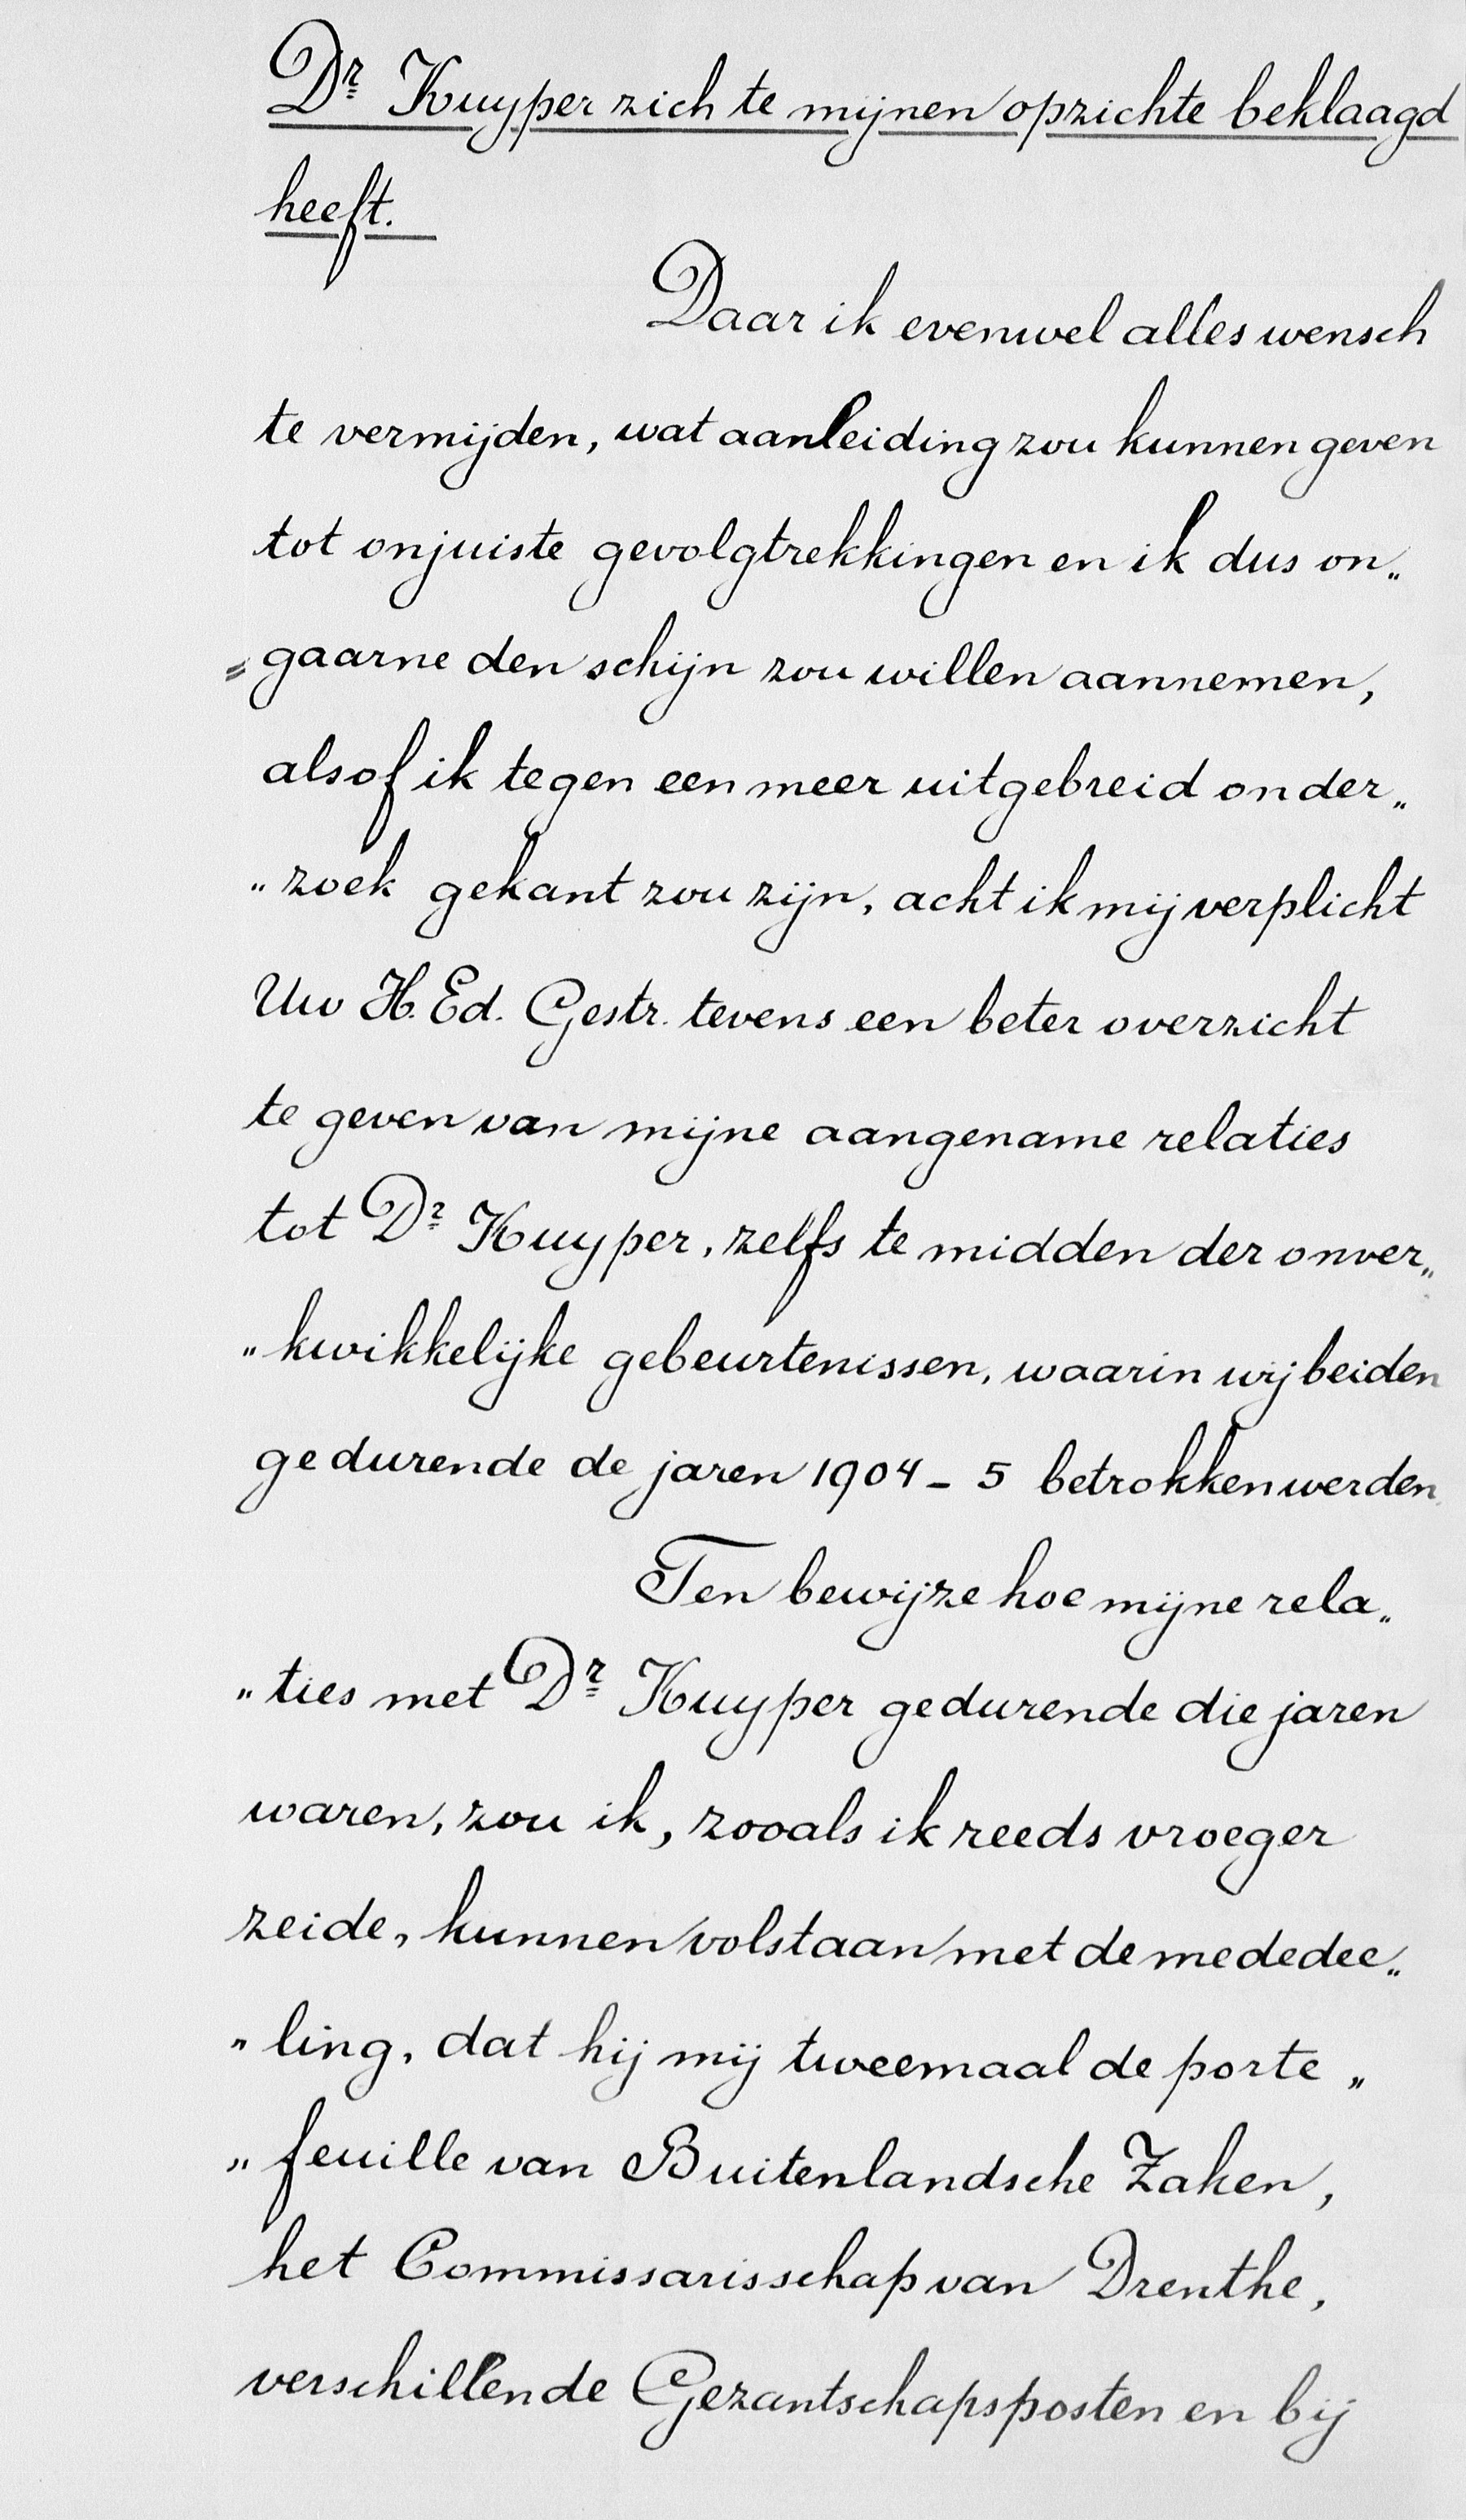 Dr Kuyper zich te mijnen opzichte beklaagd
heeft.
Daar ik evenwel alles wensch
te vermijden, wat aanleiding zou kunnen geven
tot onjuiste gevolgtrekkingen en ik dus on„
„gaarne den schijn zou willen aannemen,
alsof ik tegen een meer uitgebreid onder„
„zoek gekant zou zijn, acht ik mij verplicht
Uw H. Ed. Gestr. tevens een beter overzicht
te geven van mijne aangename relaties
tot Dr Kuyper, zelfs te midden der onver„
„kwikkelijke gebeurtenissen, waarin wij beiden
gedurende de jaren 1904-5 betrokken werden.
Ten bewijze hoe mijne rela„
„ties met Dr Kuyper gedurende die jaren
waren, zou ik, zooals ik reeds vroeger
zeide, kunnen volstaan met de mededee„
„ling, dat hij mij tweemaal de porte„
„feuille van Buitenlandsche Zaken,
het Commissarisschap van Drenthe,
verschillende Gezantschapsposten en bij